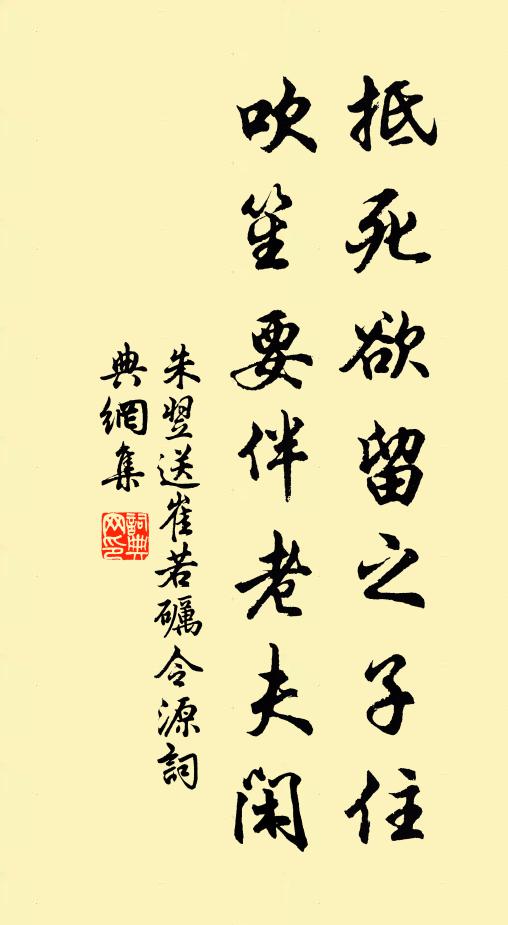 抵死欲留之子住
吹笙要伴老夫閑
朱翌送崔若礪令源詞
典網集
詞典
网印